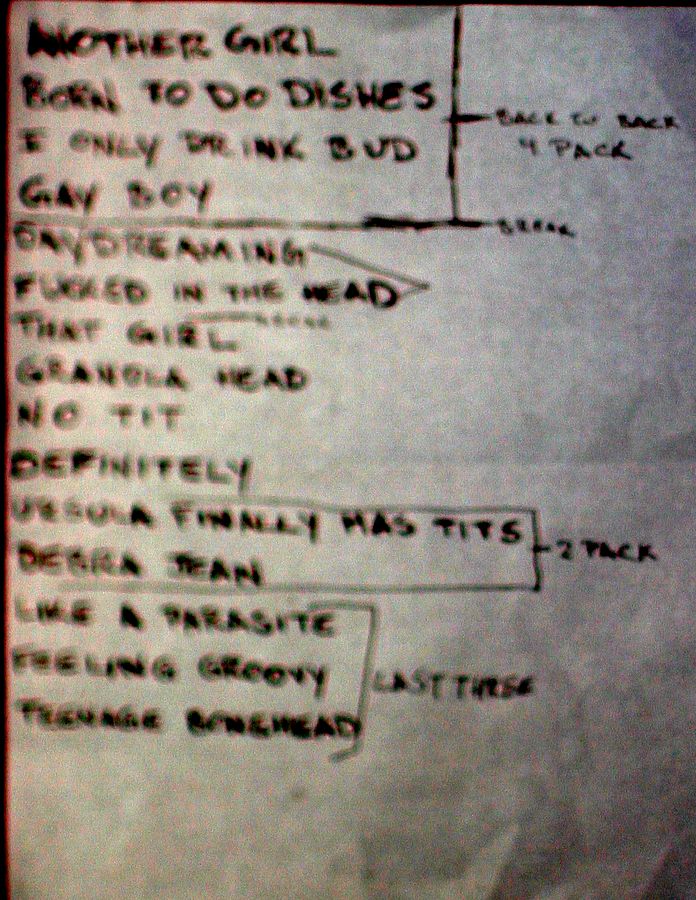 ANOTHER GIRL
BORN TO DO DISHES
I ONLY DRINK BUD
GAY BOY
BACK TO BACK
4 PACK
BREAK
DAYDREAMING
FUCKED IN THE HEAD
THAT GIRL
GRANOLA HEAD
NO TIT
DEFINITELY
URSULA FINALLY HAS TITS
DEBRA JEAN
2 PACK
LIKE A PARASITE
FEELING GROOVY
TEENAGE BONEHEAD
LAST THREE